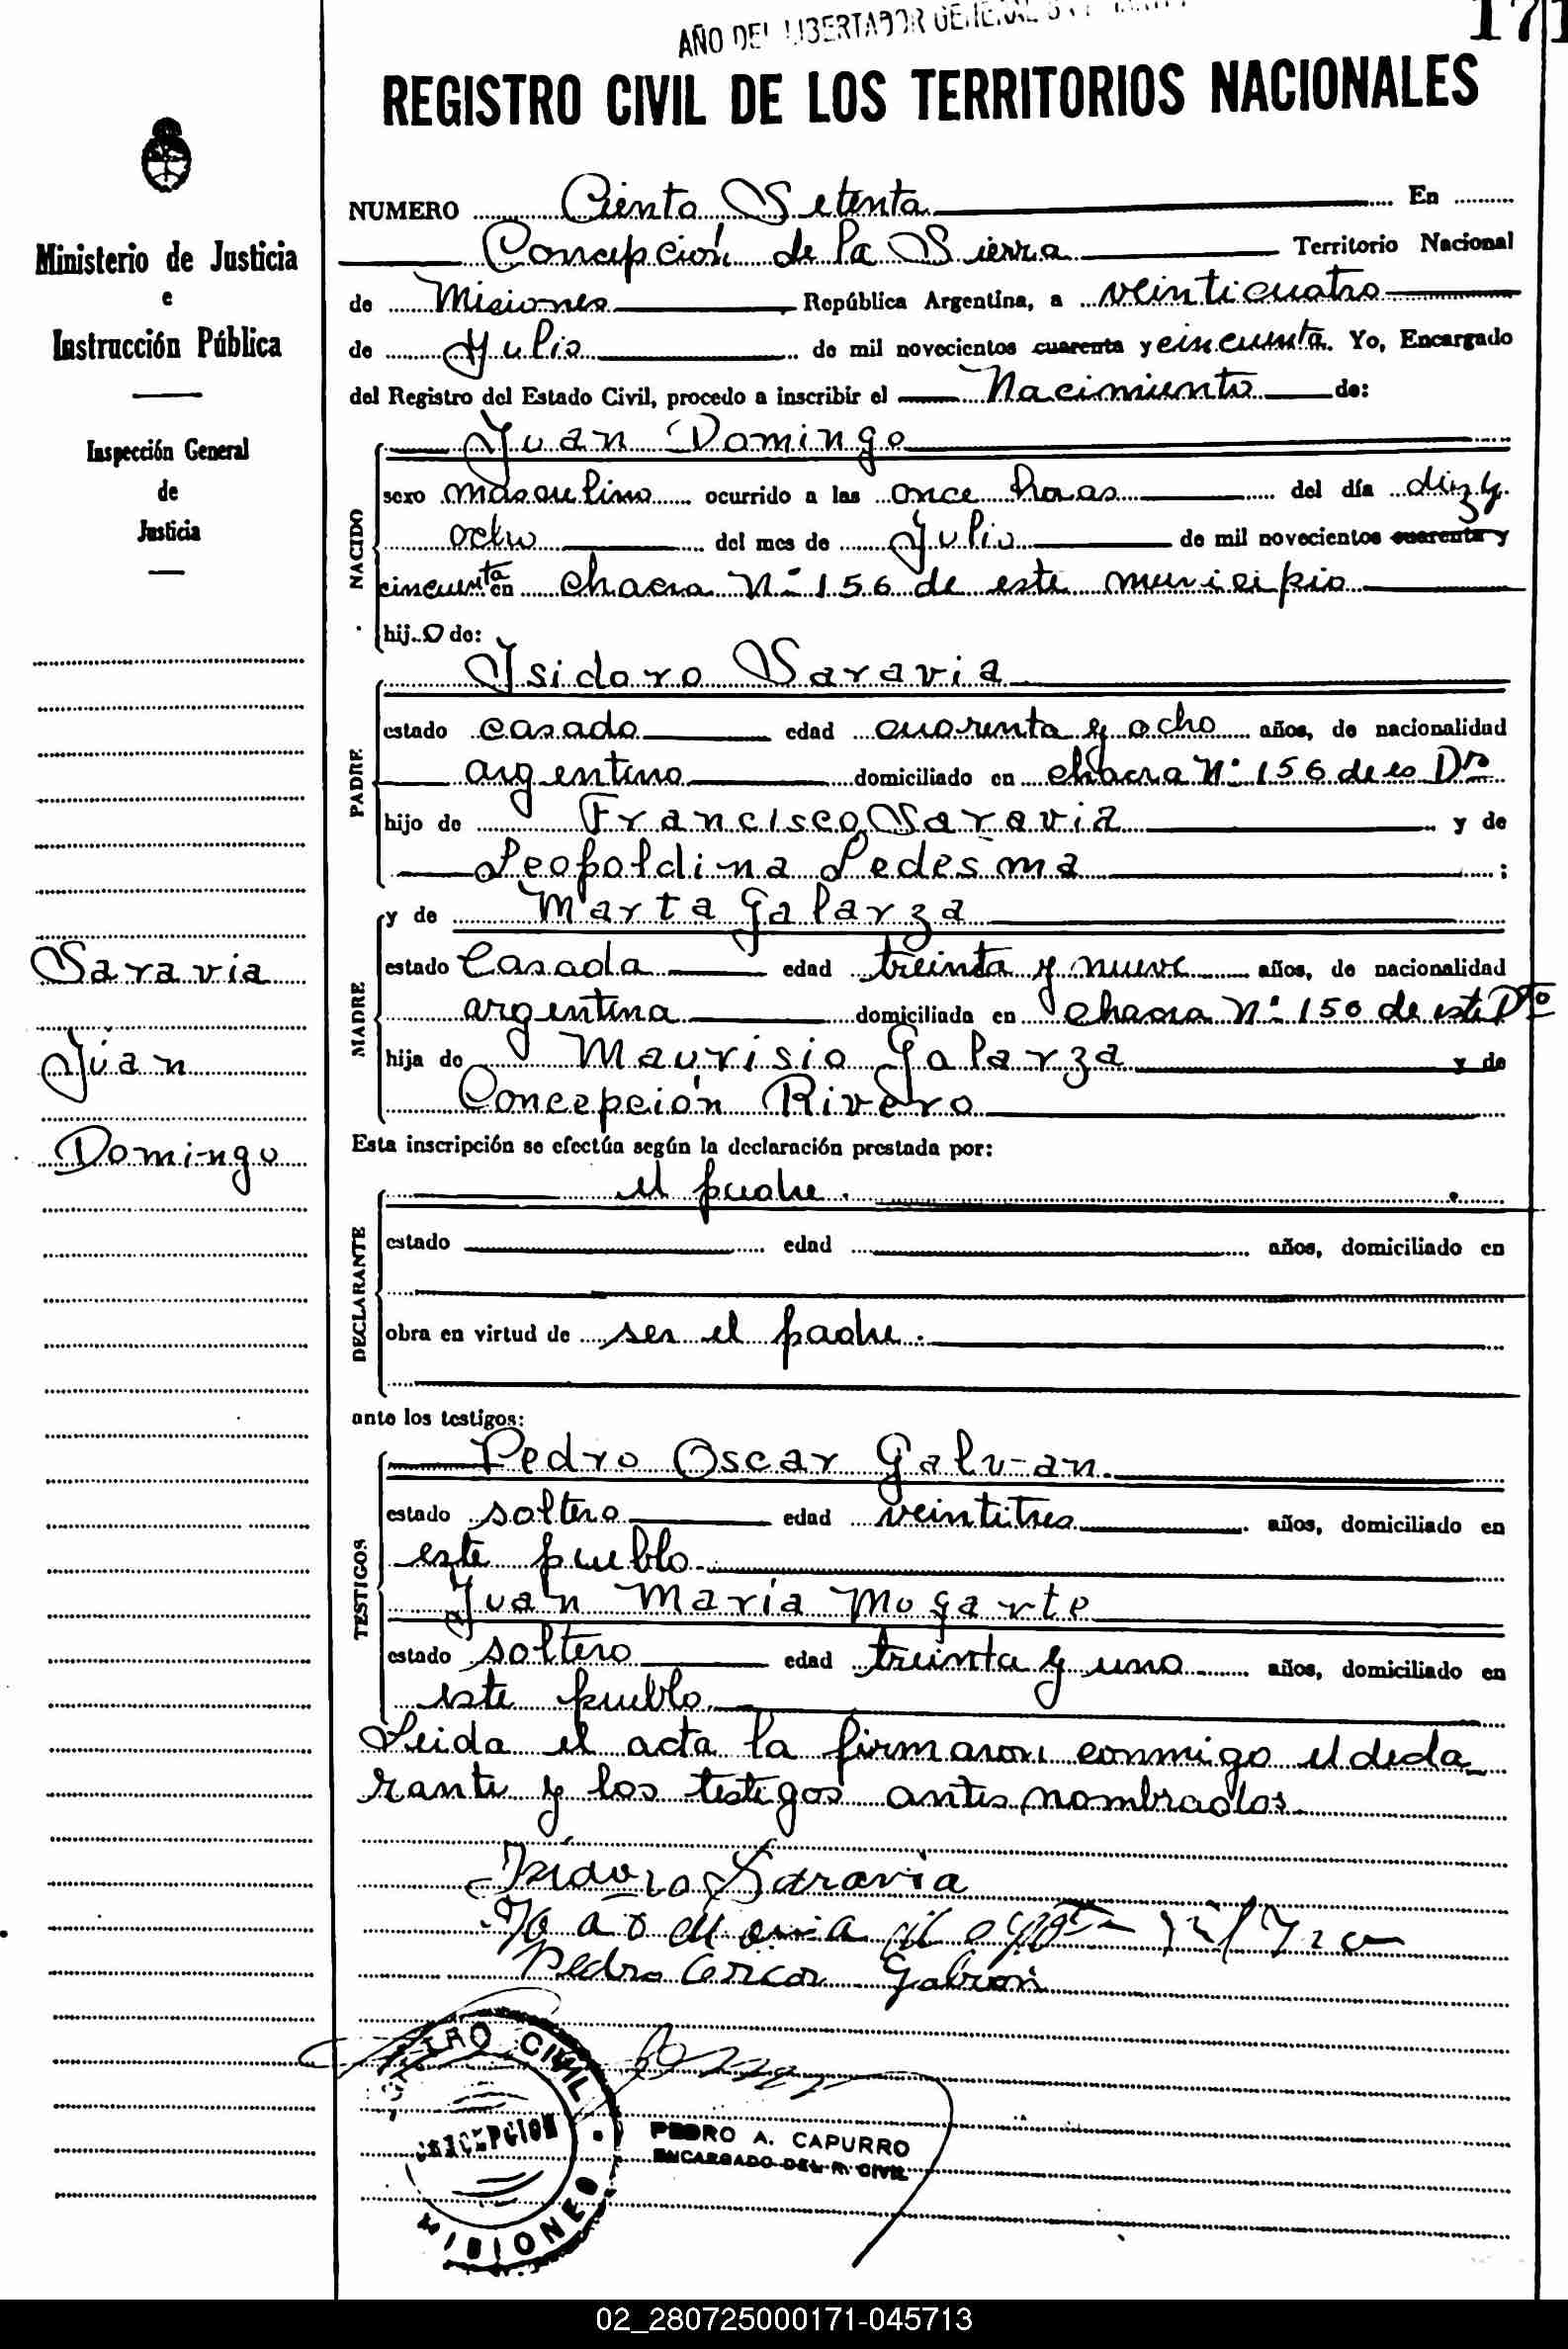 AÑO DEL LIBERTADOR GENERAL
171
REGISTRO CIVIL DE LOS TERRITORIOS NACIONALES
Ministerio de Justicia
e
Instrucción Pública
Inspección General
de
Justicia
Saravia
Juan
Domingo
NUMERO Ciento Setenta En
Concepción de la Sierra Territorio Nacional
de Misiones República Argentina, a veinticuatro
de Julio de mil novecientos cuarenta y cincuenta. Yo, Encargado
del Registro del Estado Civil, procedo a inscribir el Nacimiento de:
NACIDO
Juan Domingo
sexo masculino ocurrido a las once horas del día diez y
ocho del mes de Julio de mil novecientos cuarenta y
cincuenta en chacra N° 156 de este municipio
hijo de:
PADRE
Isidoro Saravia
estado casado edad cuarenta y ocho años, de nacionalidad
argentino domiciliado en chacra N° 156 de es Dto
hijo de Francisco Saravia y de
Leopoldina Ledesma ;
MADRE
y de Marta Galarza
estado Casada edad treinta y nueve años, de nacionalidad
argentina domiciliada en chacra N° 150 de este Dto
hija de Maurisio Galarza y de
Concepción Rivero
Esta inscripción se efectúa según la declaración prestada por:
DECLARANTE
el padre.
estado edad años, domiciliado en
obra en virtud de ser el padre.
ante los testigos:
TESTIGOS
Pedro Oscar Galvan.
estado soltero edad veintitres años, domiciliado en
este pueblo
Juan María Mogarte
estado soltero edad treinta y uno años, domiciliado en
este pueblo.
Leida el acta la firmaron conmigo el decla
rante y los testigos antes nombrados
Isidoro Saravia
Pedro Oscar Galvan
REGISTRO CIVIL
CONCEPCION
MISIONES
PEDRO A. CAPURRO
ENCARGADO DEL R. CIVIL
02_280725000171-045713